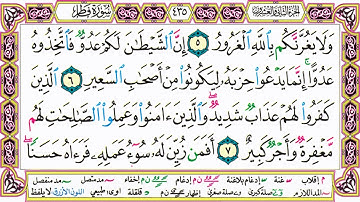 الجزء الثاني والعشرون ٤٣٥ سورة فاطر
وَلَا يَغُرَّنَّكُم بِٱللَّهِ ٱلْغَرُورُ ٥ إِنَّ ٱلشَّيْطَٰنَ لَكُمْ عَدُوٌّ فَٱتَّخِذُوهُ
عَدُوًّا ۚ إِنَّمَا يَدْعُوا۟ حِزْبَهُۥ لِيَكُونُوا۟ مِنْ أَصْحَٰبِ ٱلسَّعِيرِ ٦ ٱلَّذِينَ
كَفَرُوا۟ لَهُمْ عَذَابٌ شَدِيدٌ ۖ وَٱلَّذِينَ ءَامَنُوا۟ وَعَمِلُوا۟ ٱلصَّٰلِحَٰتِ لَهُم
مَّغْفِرَةٌ وَأَجْرٌ كَبِيرٌ ٧ أَفَمَن زُيِّنَ لَهُۥ سُوٓءُ عَمَلِهِۦ فَرَءَاهُ حَسَنًا ۖ